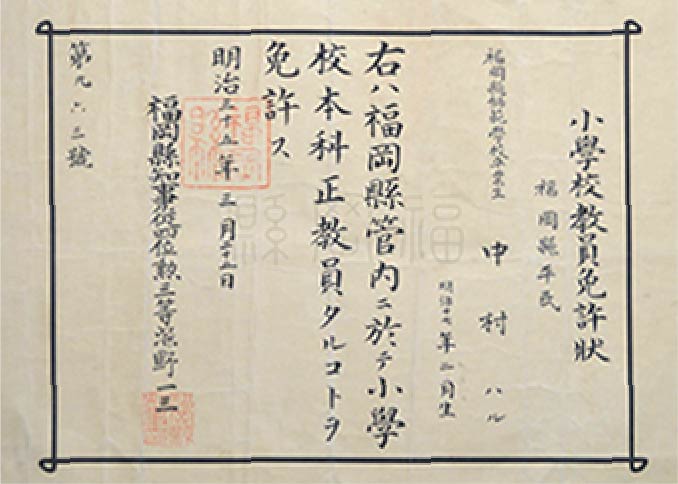 小學校教員免許狀
福岡縣平民
福岡縣師範學校卒業生
中村ハル
明治十七年二月生
右ハ福岡縣管内ニ於テ小學
校本科正教員タルコトヲ
免許ス
明治三十五年三月二十五日
福岡縣知事從四位勲三等深野一三
第九六三號
福岡縣